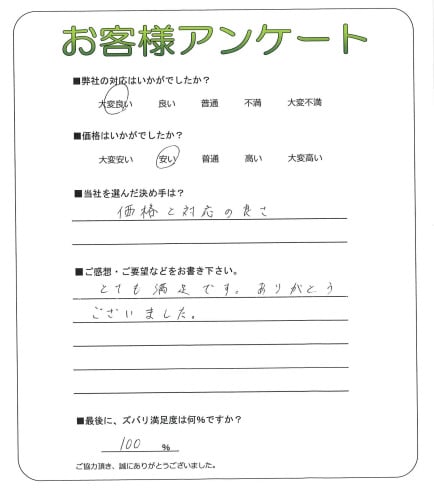 お客様アンケート
■弊社の対応はいかがでしたか？
大変良い 良い 普通 不満 大変不満
■価格はいかがでしたか？
大変安い 安い 普通 高い 大変高い
■当社を選んだ決め手は？
価格と対応の良さ
■ご感想・ご要望などをお書き下さい。
とても満足です。ありがとう
ございました。
■最後に、ズバリ満足度は何%ですか？
100 %
ご協力頂き、誠にありがとうございました。